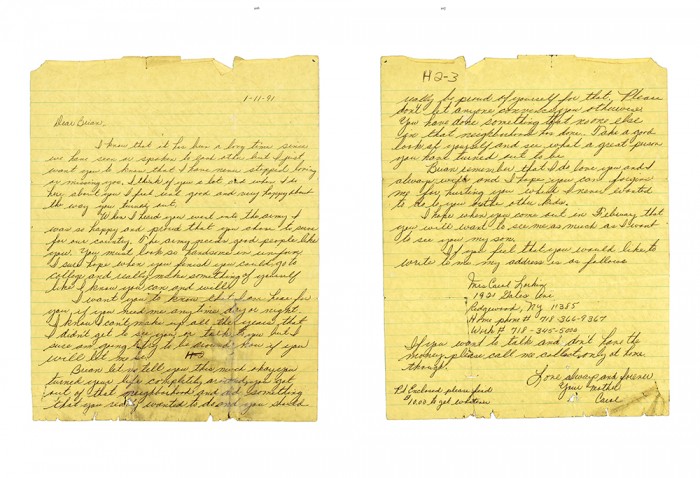 1-11-91
Dear Brian,
I know that it has been a long time since
we have seen or spoken to each other but I just
want you to know that I have never stopped loving
or missing you, I think of you a lot and when I do
hear about you I feel just good and very happy about
the way you turned out.
When I heard you went into the army I
was so happy and proud that you chose to serve
for our country. The army needs good people like
you. You must look so handsome in uniform.
I sure hope when you finish you should go to
college and really make something of yourself
like I know you can and will.
I want you to know that I am here for
you if you need me any time day or night.
I know I can't make up all the years that
I didn't get to see you or talk to you but I
sure am going to try to be around now if you
will let me.
Brian let me tell you this much okay you
turned your life completely around you got
out of that neighborhood and did something
that you really wanted to do and you should
H2-3
really be proud of yourself for that, Please
don't let anyone convince you otherwise.
You have done something that no one else
in that neighborhood has done. Take a good
look at yourself and see what a great person
you have turned out to be.
Brian remember that I do love you and I
always will and I hope you can forgive
me for hurting you which I never wanted
to do to you or the other kids.
I hope when you come out in February that
you will want to see me as much as I want
to see you my son.
If you feel that you would like to
write to me my address is as follows
Mrs Carol
1921 Gates Ave
Ridgewood, Ny 11385
Home phone # 718-366-9367
Work # 718-345-5000
If you want to talk and don't have the
money please call me collect only at home
though.
Love always and forever
Your Mother
Carol
P.S. Enclosed please find
$10.00 to get whatever